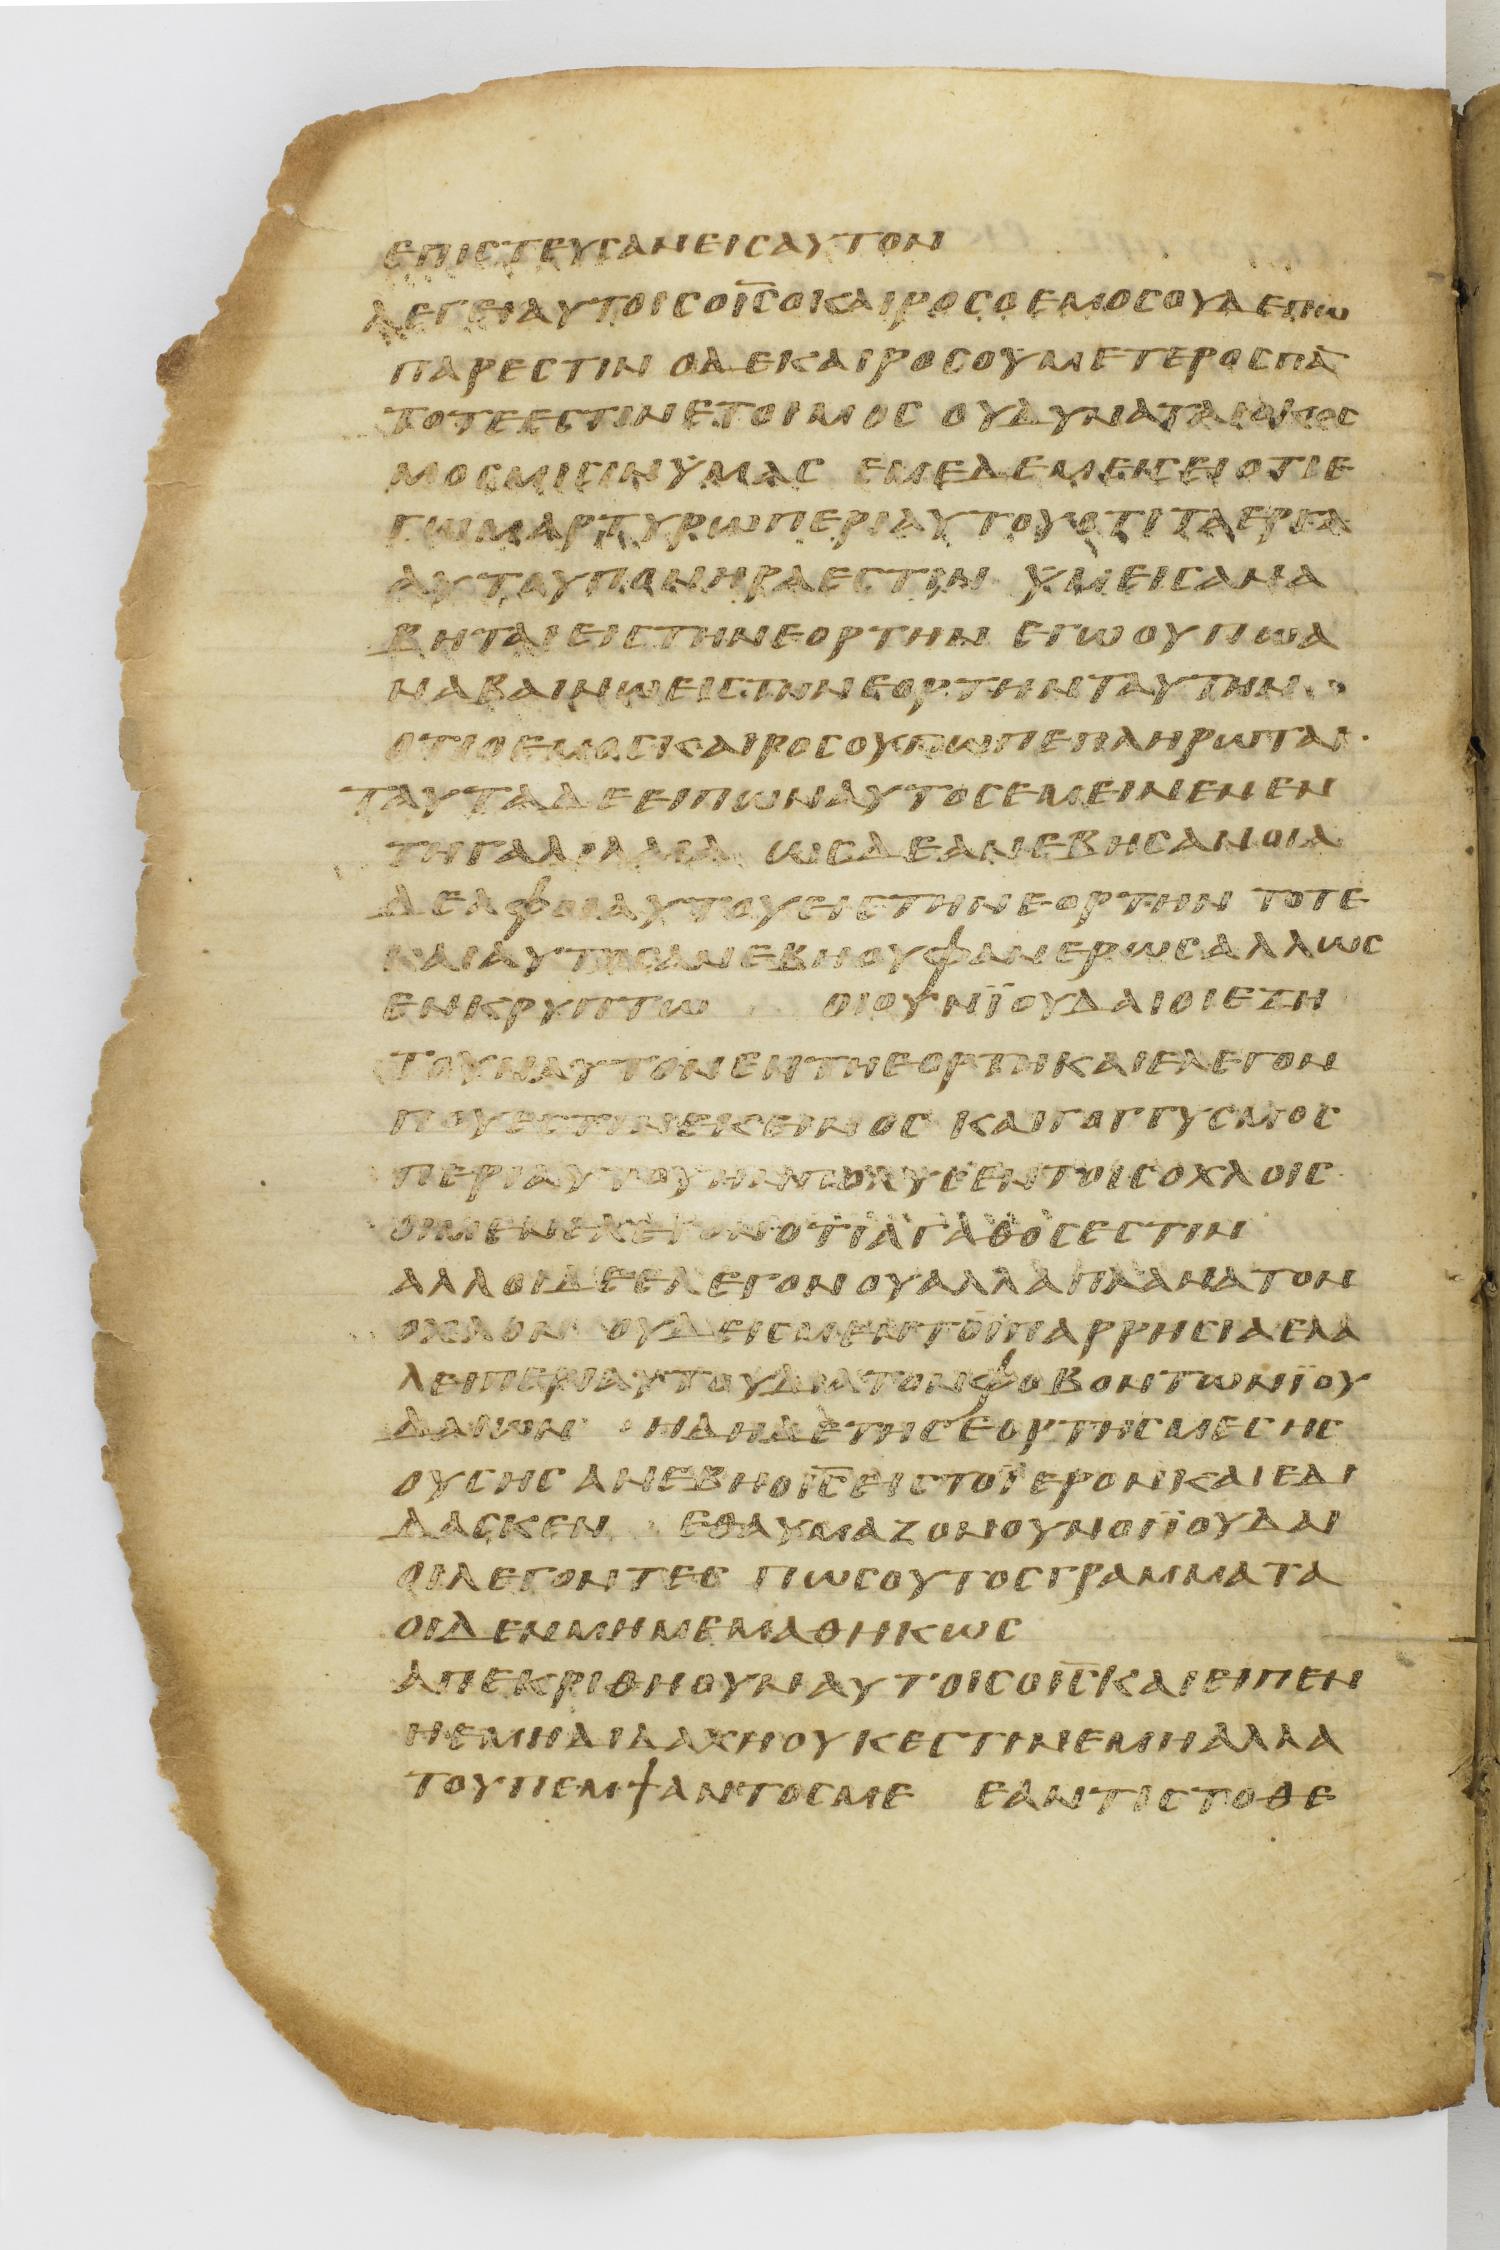 ΕΠΙΣΤΕΥΣΑΝΕΙΣΑΥΤΟΝ
ΛΕΓΕΙΑΥΤΟΙΣΟΙ̅Σ̅ΟΚΑΙΡΟΣΟΕΜΟΣΟΥΔΕΠΩ
ΠΑΡΕΣΤΙΝ ΟΔΕΚΑΙΡΟΣΟΥΜΕΤΕΡΟΣΠΑ̅
ΤΟΤΕΕΣΤΙΝΕΤΟΙΜΟΣ ΟΥΔΥΝΑΤΑΙΟΚΟΣ
ΜΟΣΜΙΣΙΝΫΜΑΣ ΕΜΕΔΕΜΕΙΣΕΙΟΤΙΕ
ΓΩΜΑΡΤΥΡΩΠΕΡΙΑΥΤΟΥΟΤΙΤΑΕΡΓΑ
ΑΥΤΟΥΠΟΝΗΡΑΕΣΤΙΝ ΥΜΕΙΣΑΝΑ
ΒΗΤΑΙΕΙΣΤΗΝΕΟΡΤΗΝ ΕΓΩΟΥΠΩΑ
ΝΑΒΑΙΝΩΕΙΣΤΗΝΕΟΡΤΗΝΤΑΥΤΗΝ
ΟΤΙΟΕΜΟΣΚΑΙΡΟΣΟΥΠΩΠΕΠΛΗΡΩΤΑΙ·
ΤΑΥΤΑΔΕΕΙΠΩΝΑΥΤΟΣΕΜΕΙΝΕΝΕΝ
ΤΗΓΑΛΙΛΑΙΑ ΩΣΔΕΑΝΕΒΗΣΑΝΟΙΑ
ΔΕΛΦΟΙΑΥΤΟΥΕΙΣΤΗΝΕΟΡΤΗΝ ΤΟΤΕ
ΚΑΙΑΥΤΟΣΑΝΕΒΗΟΥΦΑΝΕΡΩΣΑΛΛΩΣ
ΕΝΚΡΥΠΤΩ ΟΙΟΥΝΪΟΥΔΑΙΟΙΕΖΗ
ΤΟΥΝΑΥΤΟΝΕΝΤΗΕΟΡΤΗΚΑΙΕΛΕΓΟΝ
ΠΟΥΕΣΤΙΝΕΚΕΙΝΟΣ ΚΑΙΓΟΓΓΥΣΜΟΣ
ΠΕΡΙΑΥΤΟΥΗΝΠΟΛΥΣΕΝΤΟΙΣΟΧΛΟΙΣ
ΟΙΜΕΝΕΛΕΓΟΝΟΤΙΑΓΑΘΟΣΕΣΤΙΝ
ΑΛΛΟΙΔΕΕΛΕΓΟΝΟΥΑΛΛΑΠΛΑΝΑΤΟΝ
ΟΧΛΟΝ ΟΥΔΕΙΣΜΕΝΤΟΙΠΑΡΡΗΣΙΑΕΛΑ
ΛΕΙΠΕΡΙΑΥΤΟΥΔΙΑΤΟΝΦΟΒΟΝΤΩΝΪΟΥ
ΔΑΙΩΝ ΗΔΗΔΕΤΗΣΕΟΡΤΗΣΜΕΣΗΣ
ΟΥΣΗΣΑΝΕΒΗΟΙ̅Σ̅ΕΙΣΤΟΪΕΡΟΝΚΑΙΕΔΙ
ΔΑΣΚΕΝ ΕΘΑΥΜΑΖΟΝΟΥΝΟΙΪΟΥΔΑΙ
ΟΙΛΕΓΟΝΤΕΣ ΠΩΣΟΥΤΟΣΓΡΑΜΜΑΤΑ
ΟΙΔΕΝΜΗΜΕΜΑΘΗΚΩΣ
ΑΠΕΚΡΙΘΗΟΥΝΑΥΤΟΙΣΟΙ̅Σ̅ΚΑΙΕΙΠΕΝ
ΗΕΜΗΔΙΔΑΧΗΟΥΚΕΣΤΙΝΕΜΗΑΛΛΑ
ΤΟΥΠΕΜΨΑΝΤΟΣΜΕ ΕΑΝΤΙΣΤΟΘΕ